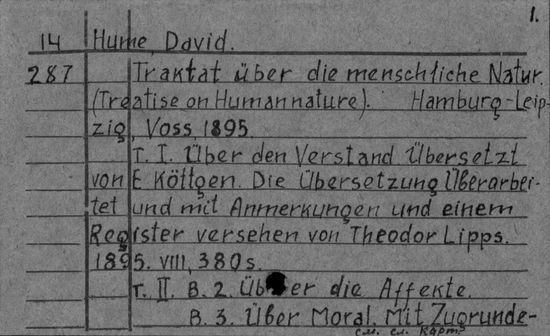 1.
14 Hume, David.
287 Traktat über die menschliche Natur.
(Treatise on Human nature). Hamburg-Leip-
zig, Voss, 1895.
T. I. Über den Verstand Übersetzt
von E Köttgen. Die Übersetzung Überarbei-
tet und mit Anmerkungen und einem
Register versehen von Theodor Lipps.
1895. VIII, 380 s.
T. II. B. 2. Über die Affekte.
B. 3. Über Moral. Mit Zugrunde-
см. сл. карт.